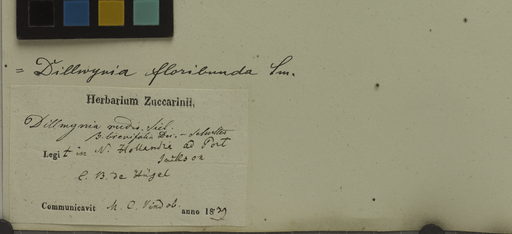 = Dillwynia floribunda Sm.
Herbarium Zuccarinii.
Dillwynia rudis. Sieb.
B. brevifolia
Legit in N. Hollandia ad Port
Jackson
C. B. de Hügel
Communicavit M. C. Vindob. anno 1839